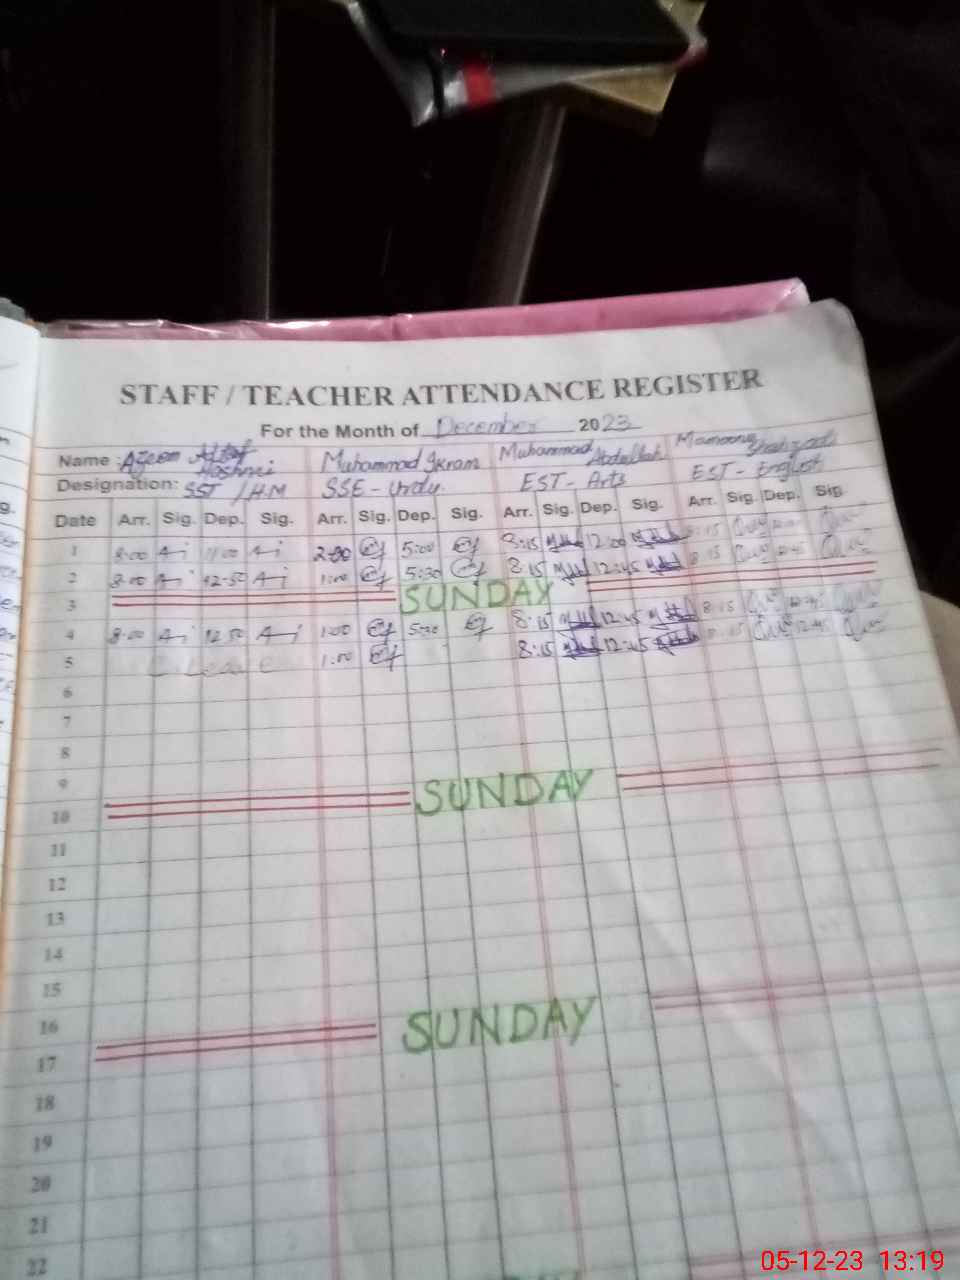 STAFF / TEACHER ATTENDANCE REGISTER
For the Month of December 2023
Name : Azeem Altaf Hashmi Muhammad Ikram Muhammad Abdullah Mamoona Shahzadi
Designation: SST / H.M SSE - Urdu. EST - Arts EST - English
Date Arr. Sig. Dep. Sig. Arr. Sig. Dep. Sig. Arr. Sig. Dep. Sig. Arr. Sig. Dep. Sig.
1 8:00 11:00 5:00 8:15 12:00 8:15
2 8:00 12:50 1:00 5:30 8:15 12:45 8:15 12:45
3 SUNDAY
4 8:00 12:50 1:00 5:30 8:15 12:45 8:15 12:45
5 Leave 1:00 8:15 12:45 8:15 12:45
6
7
8
9
10 SUNDAY
11
12
13
14
15
16
17 SUNDAY
18
19
20
21
22
05-12-23 13:19